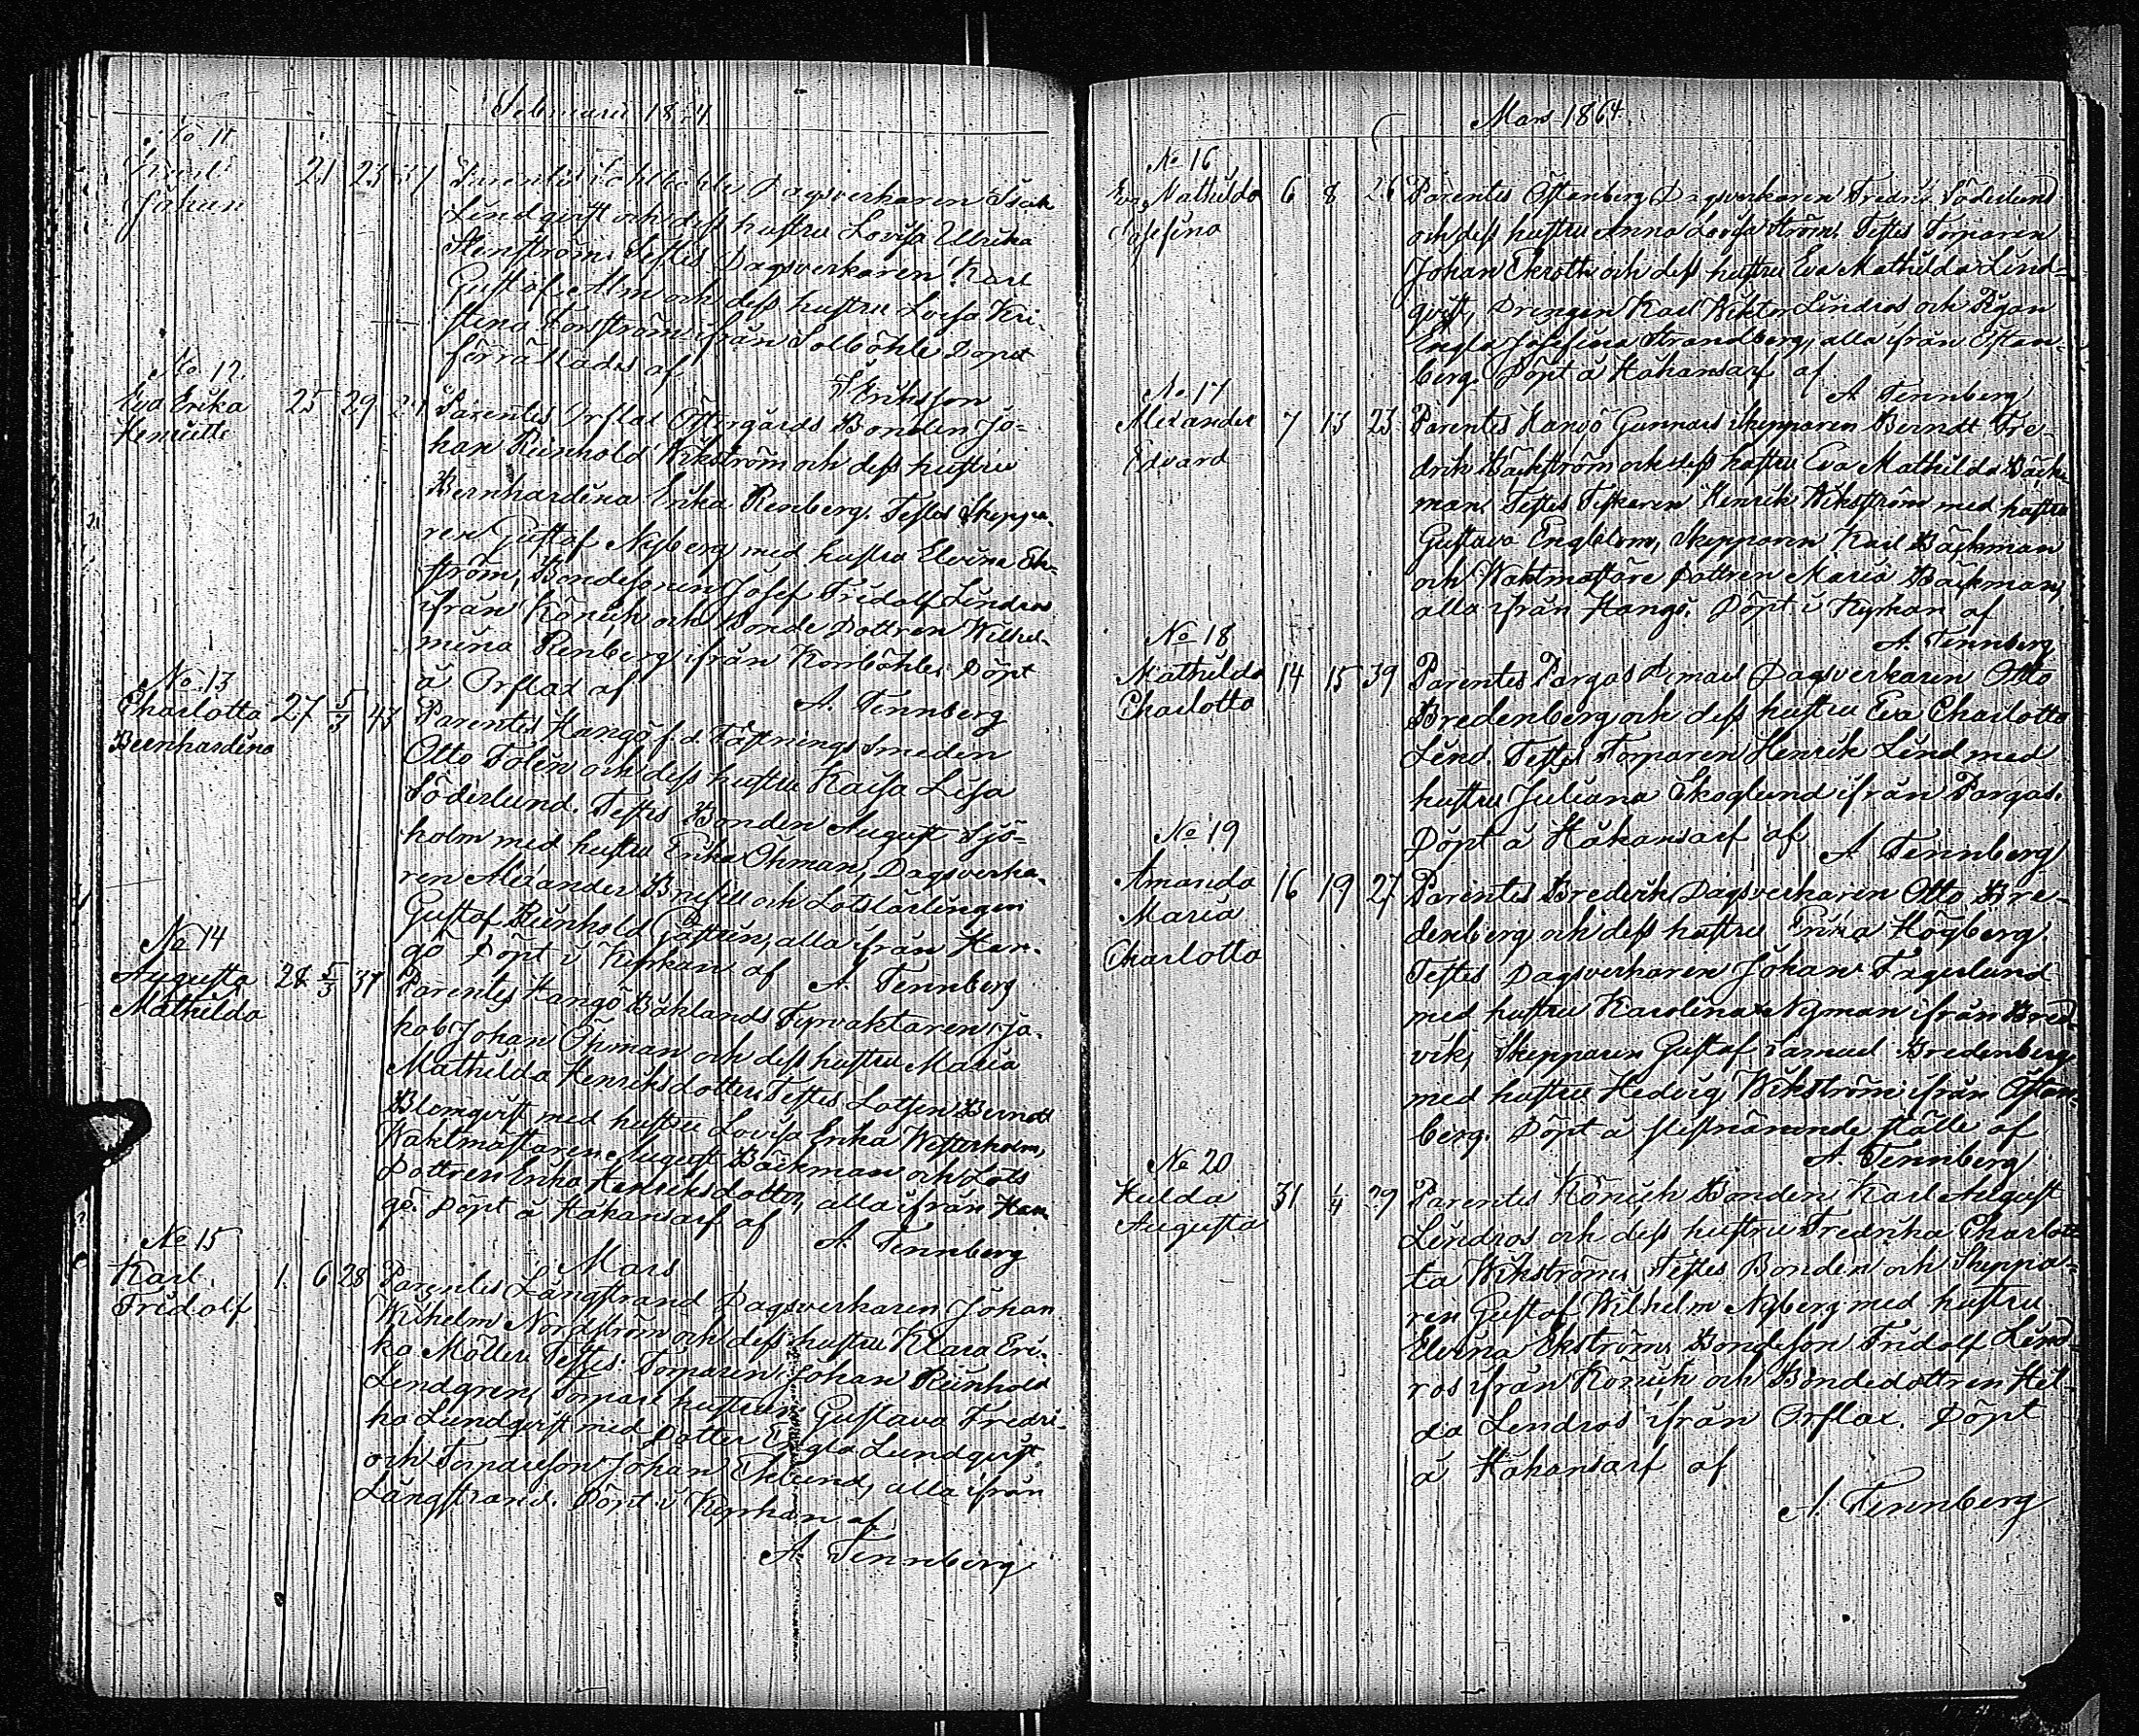 Februarii 1864
No 11
Karl 21 23 37 Parentes Solböhle Dagsverkaren Isak
Johan Lindqvist och dess hustru Lovisa Ulrika
Stenström. Testes Dagsverkaren Karl
Gustaf Alm och dess hustru Lovisa Kri-
stina Forsström ifrån Solböhle Döpet
förrättades af
Eriksson
No 12
Eva Erika 25 29 Parentes Orslax Östergårds Bonden Jo-
Henriette han Reinhold Wikström och dess hustru
Bernhardina Erika Renberg. Testes Skeppa-
ren Gustaf Nyberg med hustru Elvina Ek-
ström, Bondesonen Josef Fridolf Lindros
ifrån Könick och Bonde Dottren Wilhel-
mina Renberg ifrån Korsböhle. Döpt
å Orslax af
A. Tennberg
No 13
Charlotta 27 5/3 43 Parentes Hangö f.d. Fästnings Smeden
Bernhardina Otto Tolin och dess hustru Kaisa Lisa
Söderlund. Testes Bonden August Sjö-
holm med hustru Erika Öhman, Dagsverka-
ren Alexander och Lotslärlingen
Gustaf Reinhold alla ifrån Han-
gö Döpt i Kyrkan af A. Tennberg
No 14
Augusta 28 5/3 37 Parentes Hangö Båklands Fyrvaktaren Ja-
Mathilda kob Johan Öhman och dess hustru Maria
Mathilda Henriksdotter. Testes Lotsen Berndt
Blomqvist med hustru Lovisa Erika Westerholm,
Waktmästaren August Bäckman och Lots
Dottren Erika Henriksdotter, alla ifrån Han-
gö. Döpt å Håkansarf af
A. Tennberg
No 15
Mars
Karl 1. 6 28 Parentes Långstrand Dagsverkaren Johan
Fridolf Wilhelm Nordström och dess hustru Klara Eri-
ka Möller. Testes Torparen Johan Reinhold
Lindgren, Torpare hustrun Gustava Fredri-
ka Lundqvist med Dotter Engla Lundqvist
och Torpareson Johan Eklund, alla ifrån
Långstrand. Döpt i Kyrkan af
A. Tennberg
Mars 1864.
No 16
Eva Mathilda 6 8 26 Parentes Östanberg Dagsverkaren Fredric Söderlund
Josefina och dess hustru Anna Lovisa Ström. Testes Torparen
Johan Ekroth och dess hustru Eva Mathilda Lind-
qvist, Drengen Karl Wiktor Lindros och Pigan
Engla Josefina Strandberg, alla ifrån Östan-
berg. Döpt å Håkansarf af
A Tennberg
No 17
Alexander 7 13 23 Parentes Hangö Gunnars Skepparen Berndt Fre-
Edvard drik Bäckström och dess hustru Eva Mathilda Bäck-
man. Testes Fiskaren Henrik Wikström med hustru
Gustava Engblom, Skepparen Karl Bäckman
och Waktmästare Dottren Maria Bäckman,
alla ifrån Hangö. Döpt i Kyrkan af
A. Tennberg
No 18
Mathilda 14 15 39 Parentes Pargas Dagsverkaren Otto
Charlotta Bredenberg och dess hustru Eva Charlotta
Lind. Testes Torparen Henrik Lind med
hustru Juliana Skoglund ifrån Pargas.
Döpt å Håkansarf af A Tennberg
No 19
Amanda 16 19 27 Parentes Bredvik Dagsverkaren Otto Bre-
Maria denberg och dess hustru Erika Högberg.
Charlotta Testes Dagsverkaren Johan Fagerlund
med hustru Karolina Nyman ifrån Bred-
vik, Skepparen Gustaf Samuel Bredenberg
med hustru Hedvig Wikström ifrån Östan-
berg. Döpt å sistnämnde ställe af
A. Tennberg
No 20
Hulda 31 1/4 29 Parentes Könick Bonden Karl August
Augusta Lindros och dess hustru Fredrika Charlot-
ta Wikström. Testes Bonden och Skeppa-
ren Gustaf Wilhelm Nyberg med hustru
Elvina Ekström, Bondeson Fridolf Lind-
ros ifrån Könick och Bondedottren Hil-
da Lindros ifrån Orslax. Döpt
å Håkansarf af
A. Tennberg